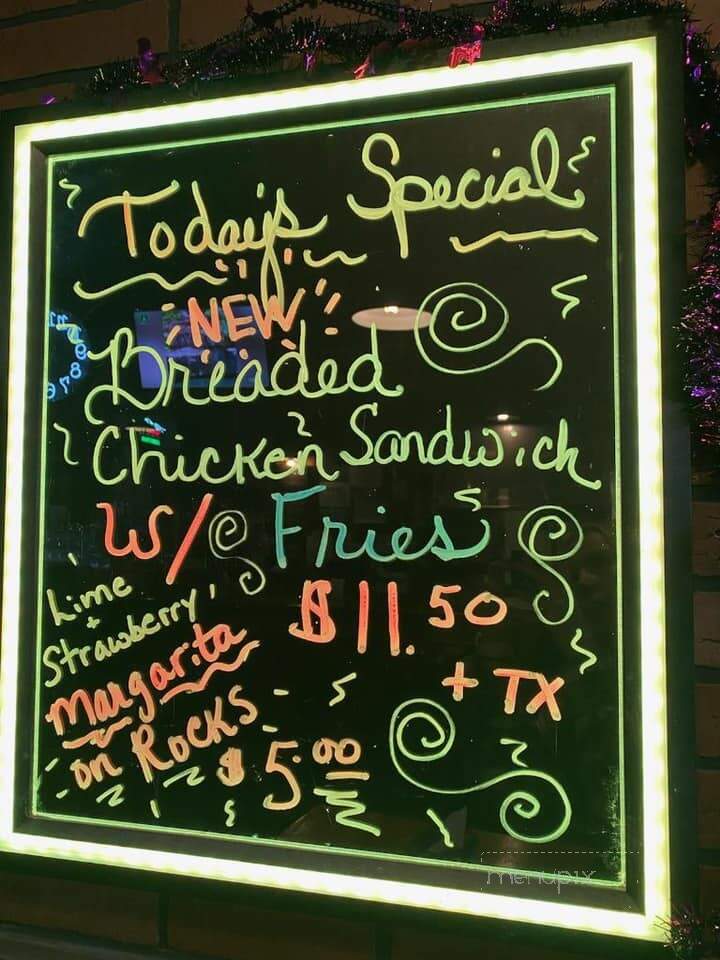 Today's Special
NEW
Breaded
Chicken Sandwich
W/ Fries
$11.50
+ TX
Lime
+
Strawberry
Margarita
on Rocks
$5.00
menupix